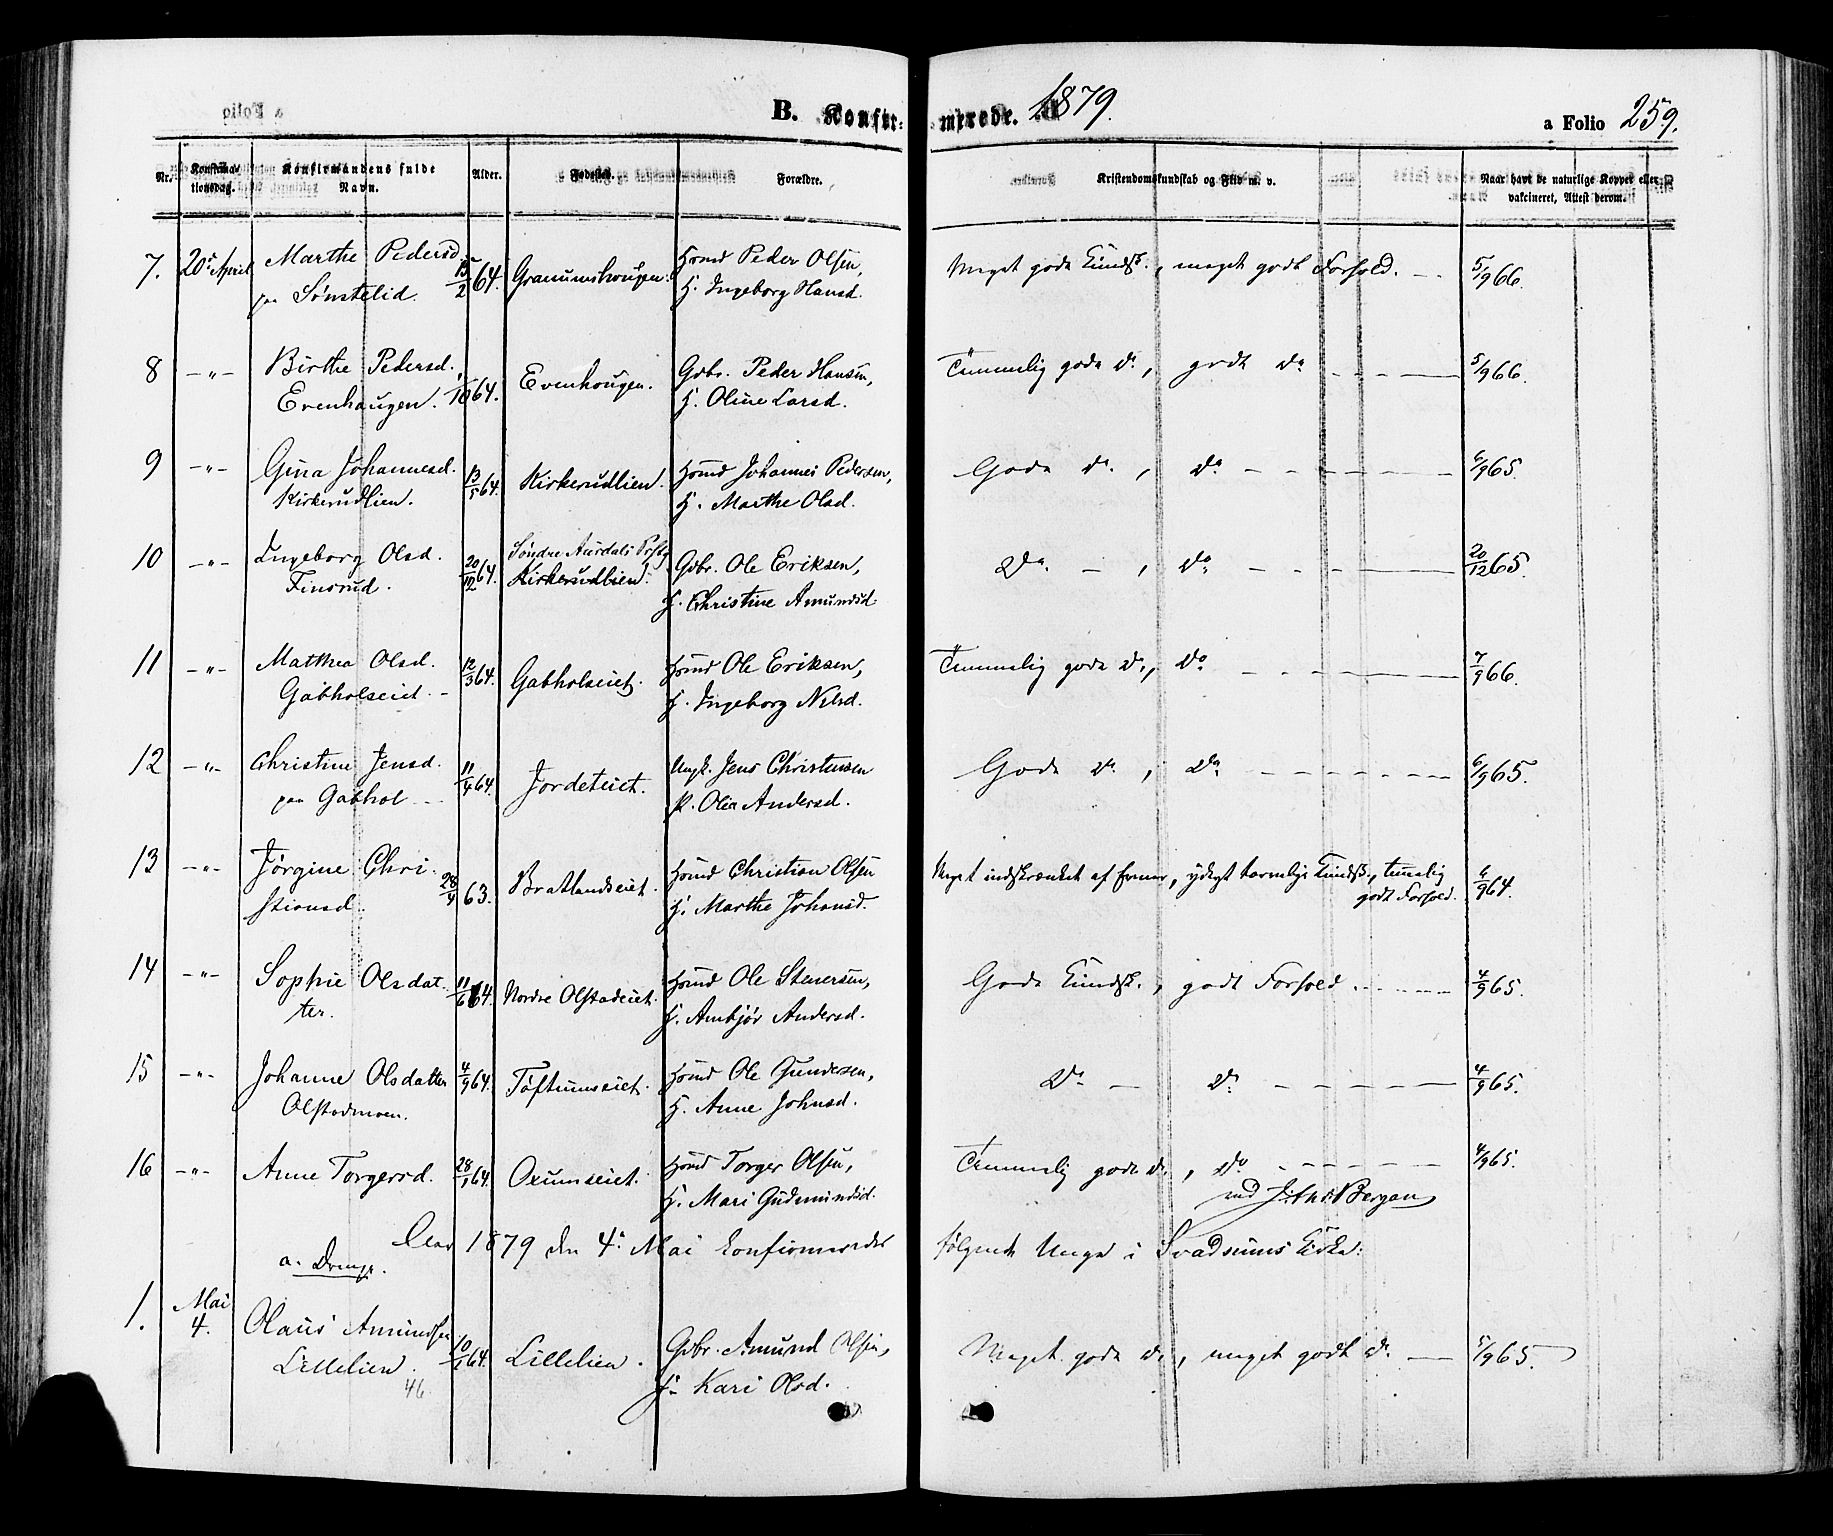 B. Konfir- merede. 1879.
a Folio 259.
Nr. Konfirmationsdag. Konfirmandens fulde Navn. Alder. Fødested. Forældre. Kristendomskundskab og Flid m. v. Naar havt de naturlige Kopper eller vakcineret, Attest derom.
7. 20de April Marthe Pedersd. 15/2 64. Granumshougen. Husmd Peder Olsen, Meget gode Kundsk., meget godt Forhold. — 5/9 66.
paa Sønstelid. H. Ingeborg Hansd.
8 —"— Birthe Pedersd. /10 64. Evenhougen. Gdbr. Peder Hansen, Temmelig gode Do, godt Do 5/9 66.
Evenhaugen. H. Oline Larsd.
9 —"— Gina Johannesd. 13/5 64. Kirkerudlien. Husmd Johannes Pedersen, Gode Do, Do 6/9 65.
Kirkerudlien. H. Marthe Olsd.
10 —"— Ingeborg Olsd. 20/12 64. Søndre Aurdals Prstg. Gdbr. Ole Eriksen, Do — , Do 20/12 65.
Finsrud. Kirkerudlien. H. Christine Amundsd
11 —"— Mathea Olsd. 12/3 64. Gabholseiet. Husmd Ole Eriksen, Temmelig gode Do, Do 7/9 66.
Gabholseiet. H. Ingeborg Nilsd.
12 —"— Christine Jensd. 11/4 64. Jordeteiet. Ungk. Jens Christensen Gode Do, Do 6/9 65.
paa Gabhol P. Olia Andersd.
13 —"— Jørgine Chri- 28/4 63. Bratlandseiet. Husmd Christian Olsen Meget indskrænket af Evner, ydert tarvelige Kundsk., temelig 6/9 64.
stiansd. H. Marthe Johansd. godt Forhold.
14 —"— Sophie Olsdat- 11/6 64. Nordre Olstadeiet. Husmd Ole Stenersen, Gode Kundsk., godt Forhold 4/9 65.
ter. H. Ambjør Andersd.
15 —"— Johanne Olsdatter 4/9 64. Tøftumseiet. Husmd Ole Gundersen, Do — Do 4/9 65.
Olstadmoen. H. Anne Johnsd.
16 —"— Anne Torgersd. 28/1 64. Oxumseiet. Husmd Torger Olsen, Temmelig gode Do, Do 4/9 65.
H. Mari Gudmundsd. Bergan
Aar 1879 den 4de Mai konfirmeredes følgende Unge i Svadsums Kirke:
a. Drenge.
1. Mai 4. Olaus Amundsen 10/1 64. Lillelien. Gdbr. Amund Olsen, Meget gode Do, meget godt Do — 5/9 65.
Lillelien. H. Kari Olsd.
46